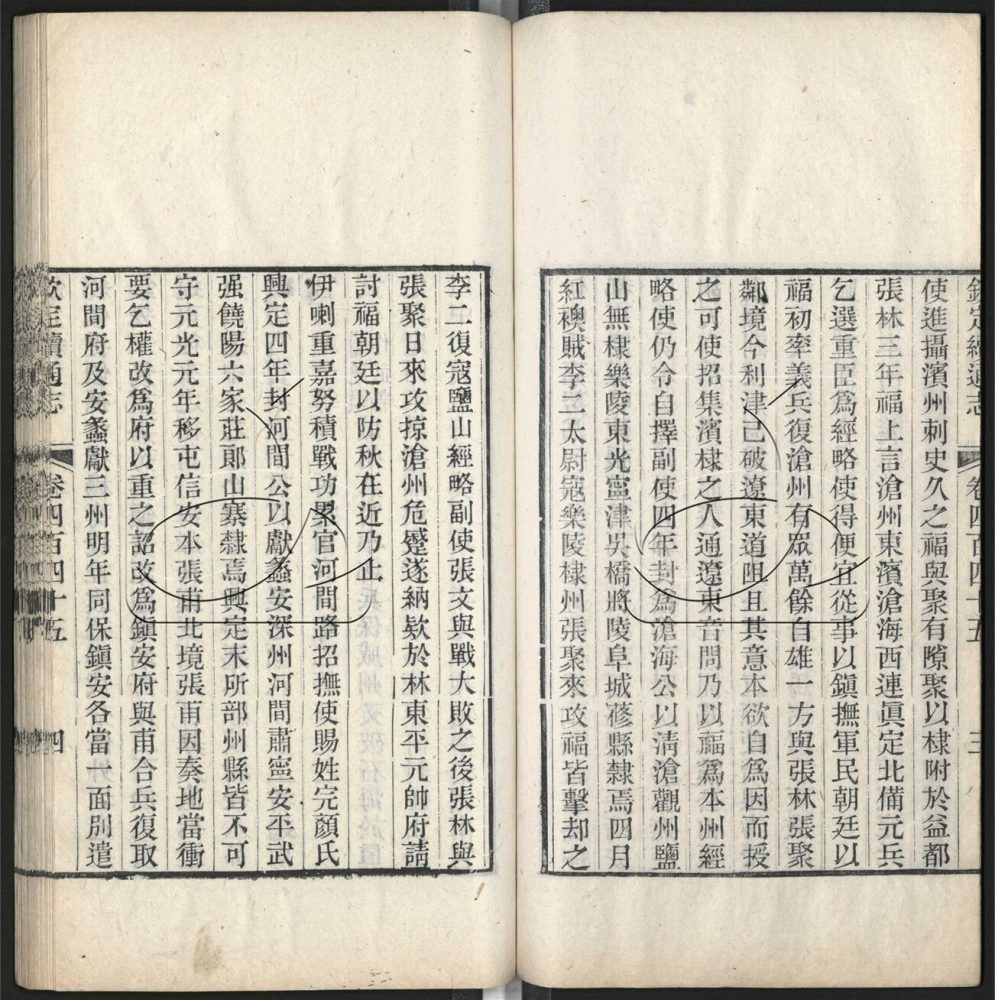 欽定續通志
卷四百四十五
三
使進攝濱州刺史久之福與聚有隙聚以棣附於益都
張林三年福上言滄州東濱滄海西連眞定北備元兵
乞選重臣爲經略使得便宜從事以鎭撫軍民朝廷以
福初率義兵復滄州有眾萬餘自雄一方與張林張聚
鄰境今利津已破遼東道阻且其意本欲自爲因而授
之可使招集濱棣之人通遼東音問乃以福爲本州經
略使仍令自擇副使四年封爲滄海公以淸滄觀州鹽
山無棣樂陵東光寧津吳橋將陵阜城蓚縣隸焉四月
紅襖賊李二太尉寇樂陵棣州張聚來攻福皆擊却之
李二復寇鹽山經略副使張文與戰大敗之後張林與
張聚日來攻掠滄州危蹙遂納欵於林東平元帥府請
討福朝廷以防秋在近乃止
伊喇重嘉努積戰功累官河間路招撫使賜姓完顏氏
興定四年封河間公以獻蠡安深州河間肅寧安平武
强饒陽六家莊郞山寨隸焉興定末所部州縣皆不可
守元光元年移屯信安本張甫北境張甫因奏地當衝
要乞權改爲府以重之詔改爲鎭安府與甫合兵復取
河間府及安蠡獻三州明年同保鎭安各當一面別遣
欽定續通志
卷四百四十五
四